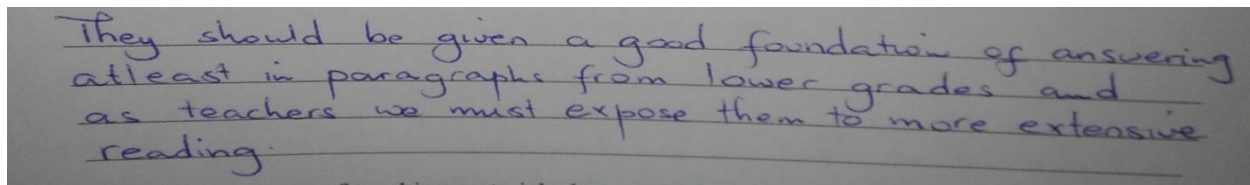 They should be given a good foundation of answering
atleast in paragraphs from lower grades and
as teachers we must expose them to more extensive
reading.